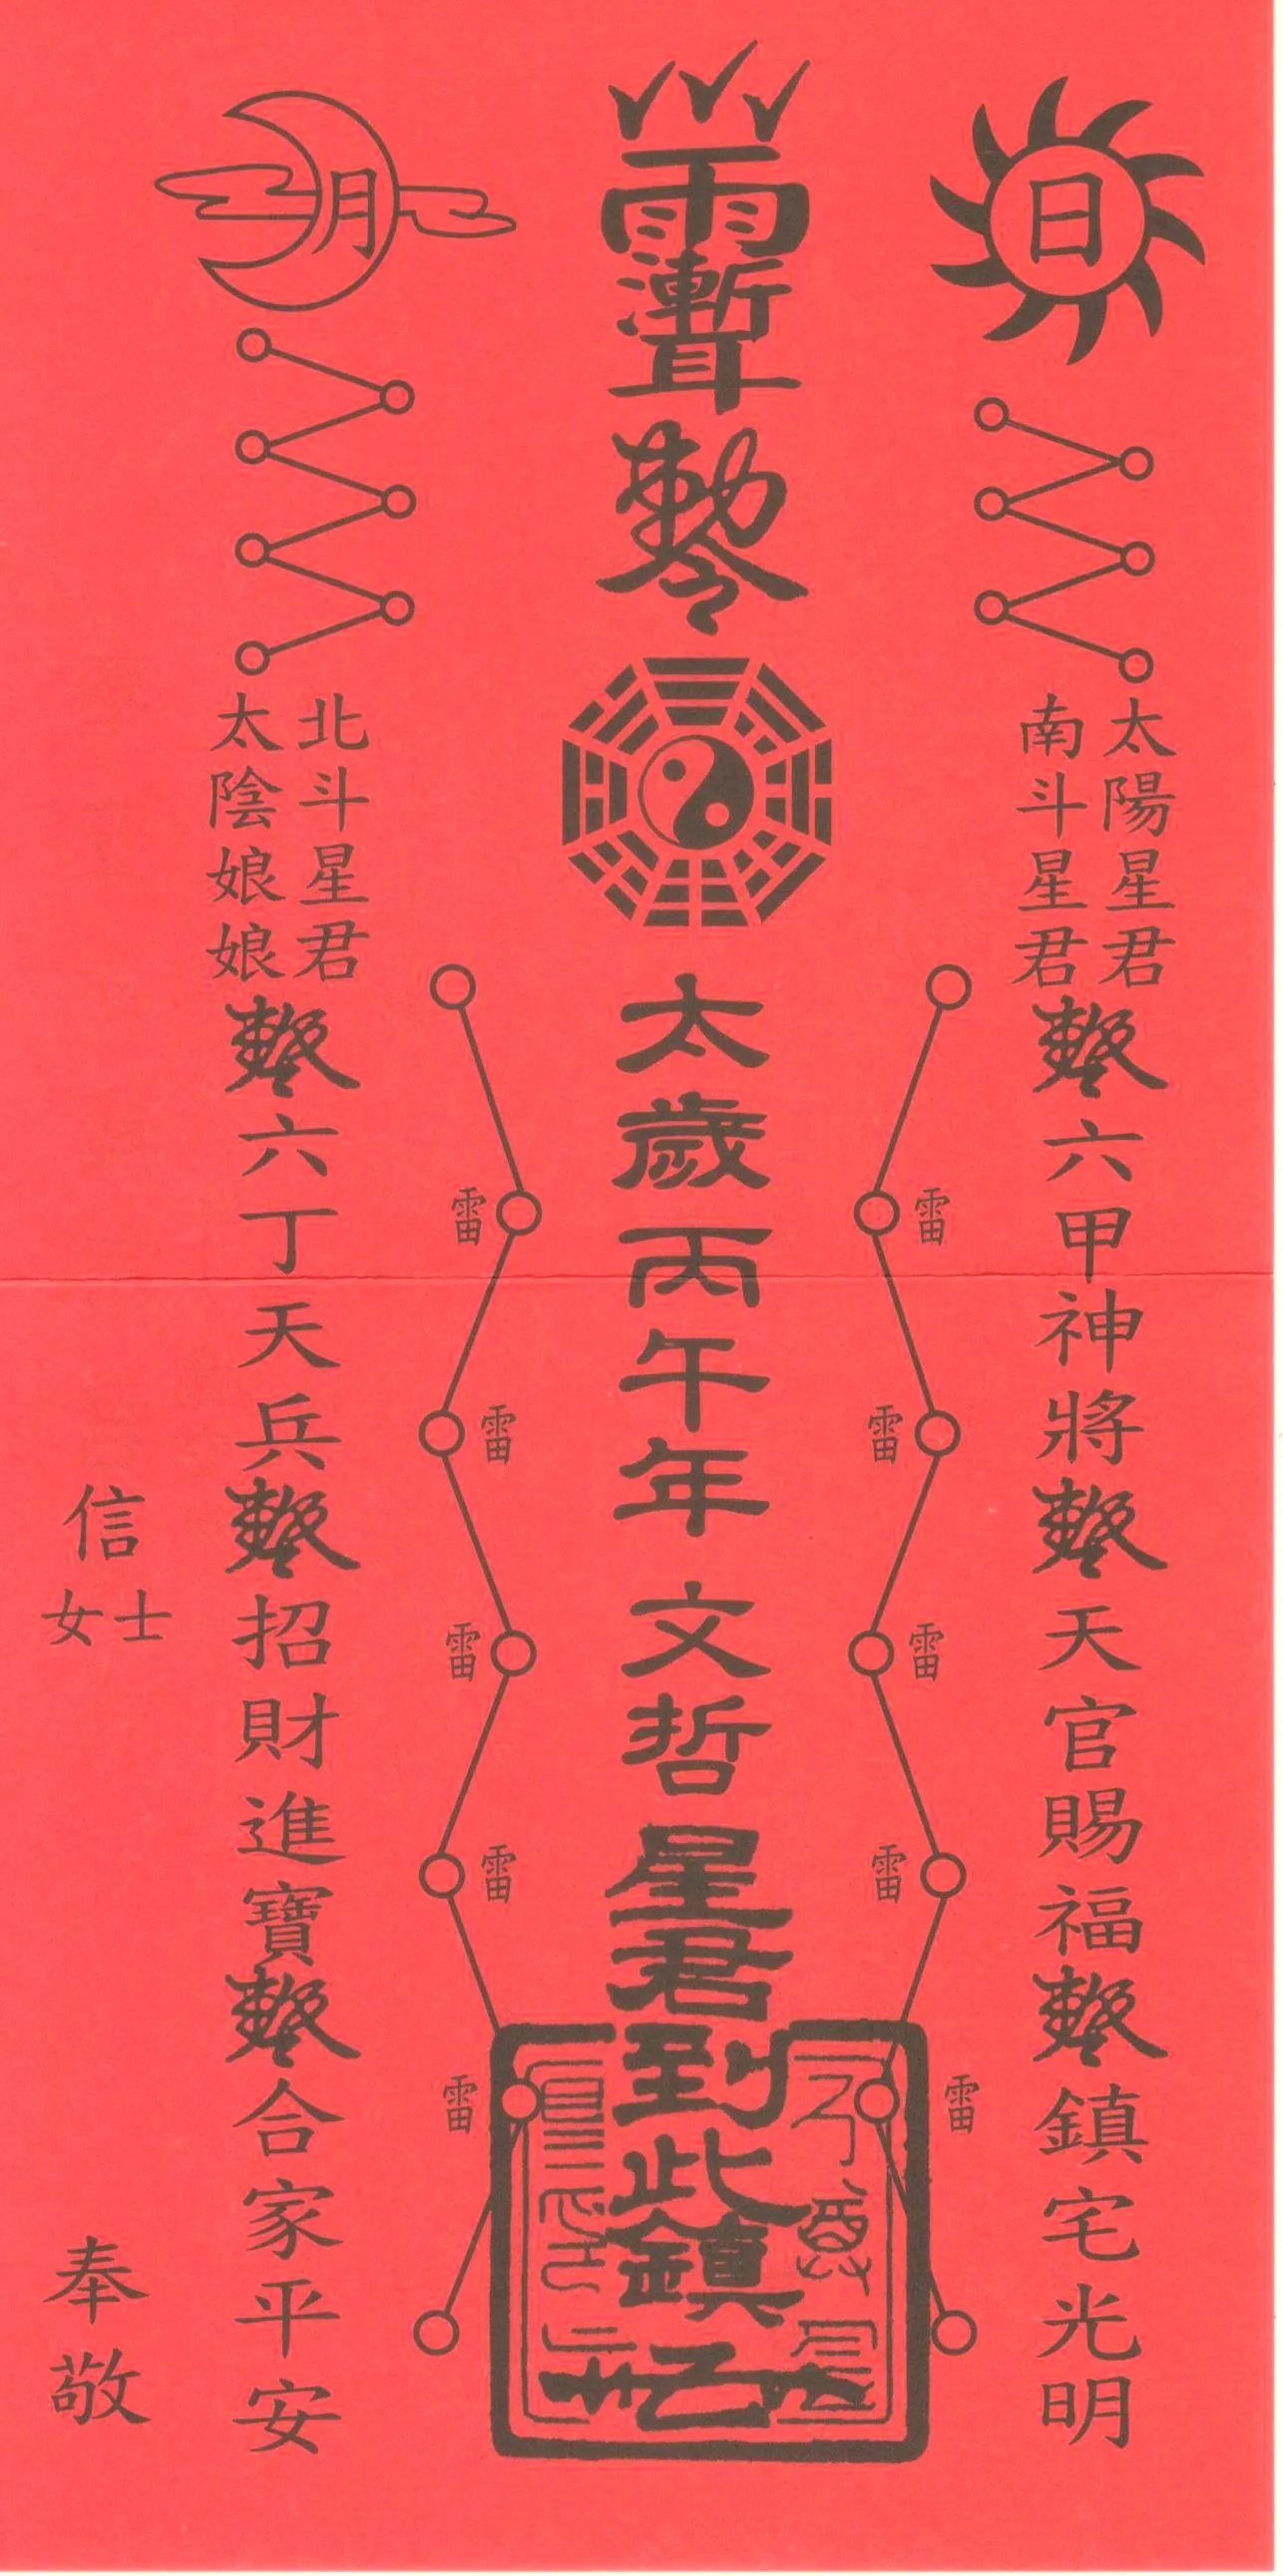 日
太陽星君
南斗星君
敕令六甲神將敕令天官賜福敕令鎮宅光明
雷
雷
雷
雷
雷
敕令
太歲丙午年文哲星君到此鎮
雷
雷
雷
雷
雷
月
北斗星君
太陰娘娘
敕令六丁天兵敕令招財進寶敕令合家平安
信
士女
奉敬